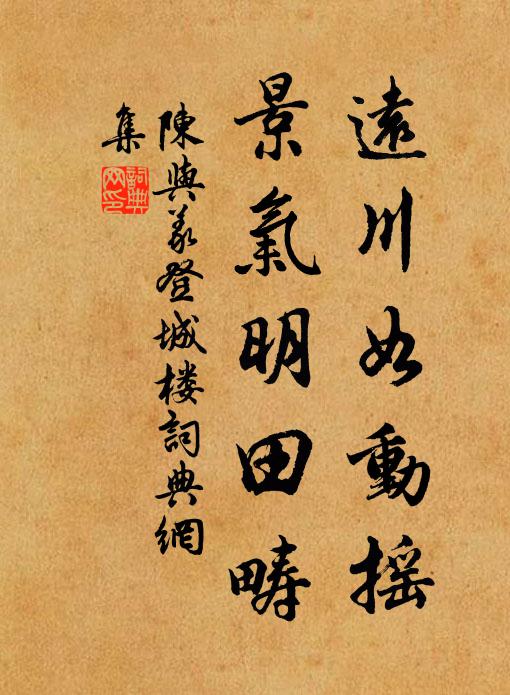 遠川如動搖
景氣明田疇
陳與義登城楼詞典網
集
詞典
网印